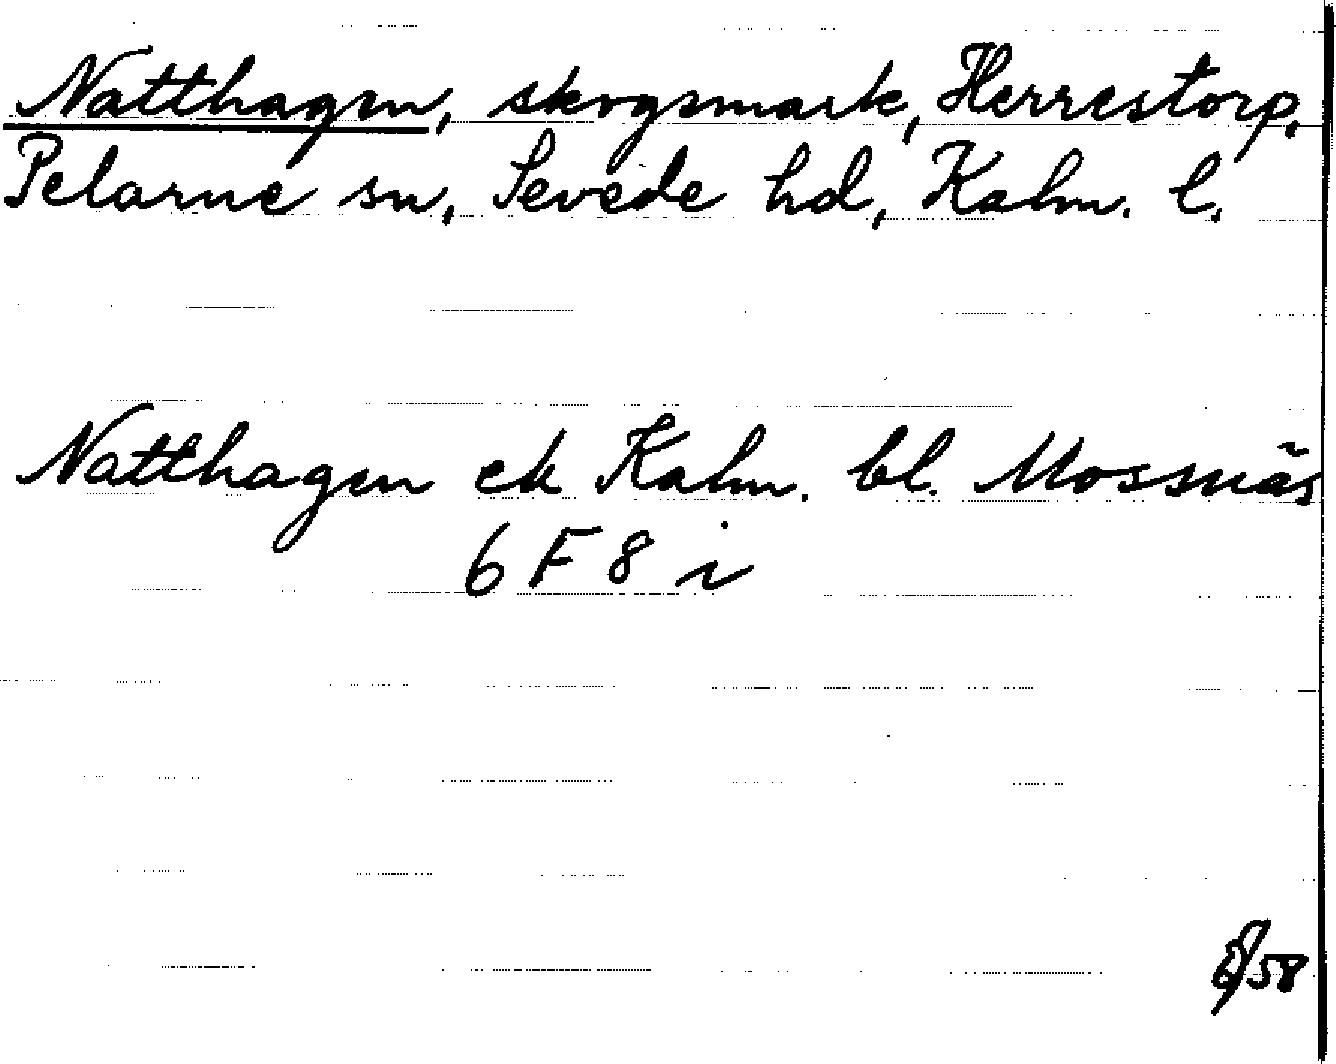 Natthagen, skogsmark, Herrestorp,
Pelarne sn, Sevede hd, Kalm. l.
Natthagen ek Kalm. bl. Mossnäs
6 F 8 i
58